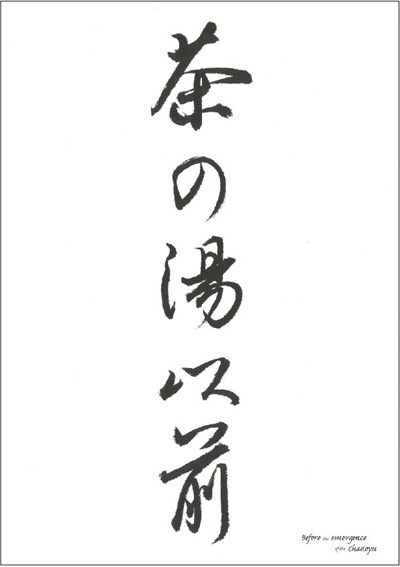 茶の湯以前
Before the emergence
of the Chanoyu